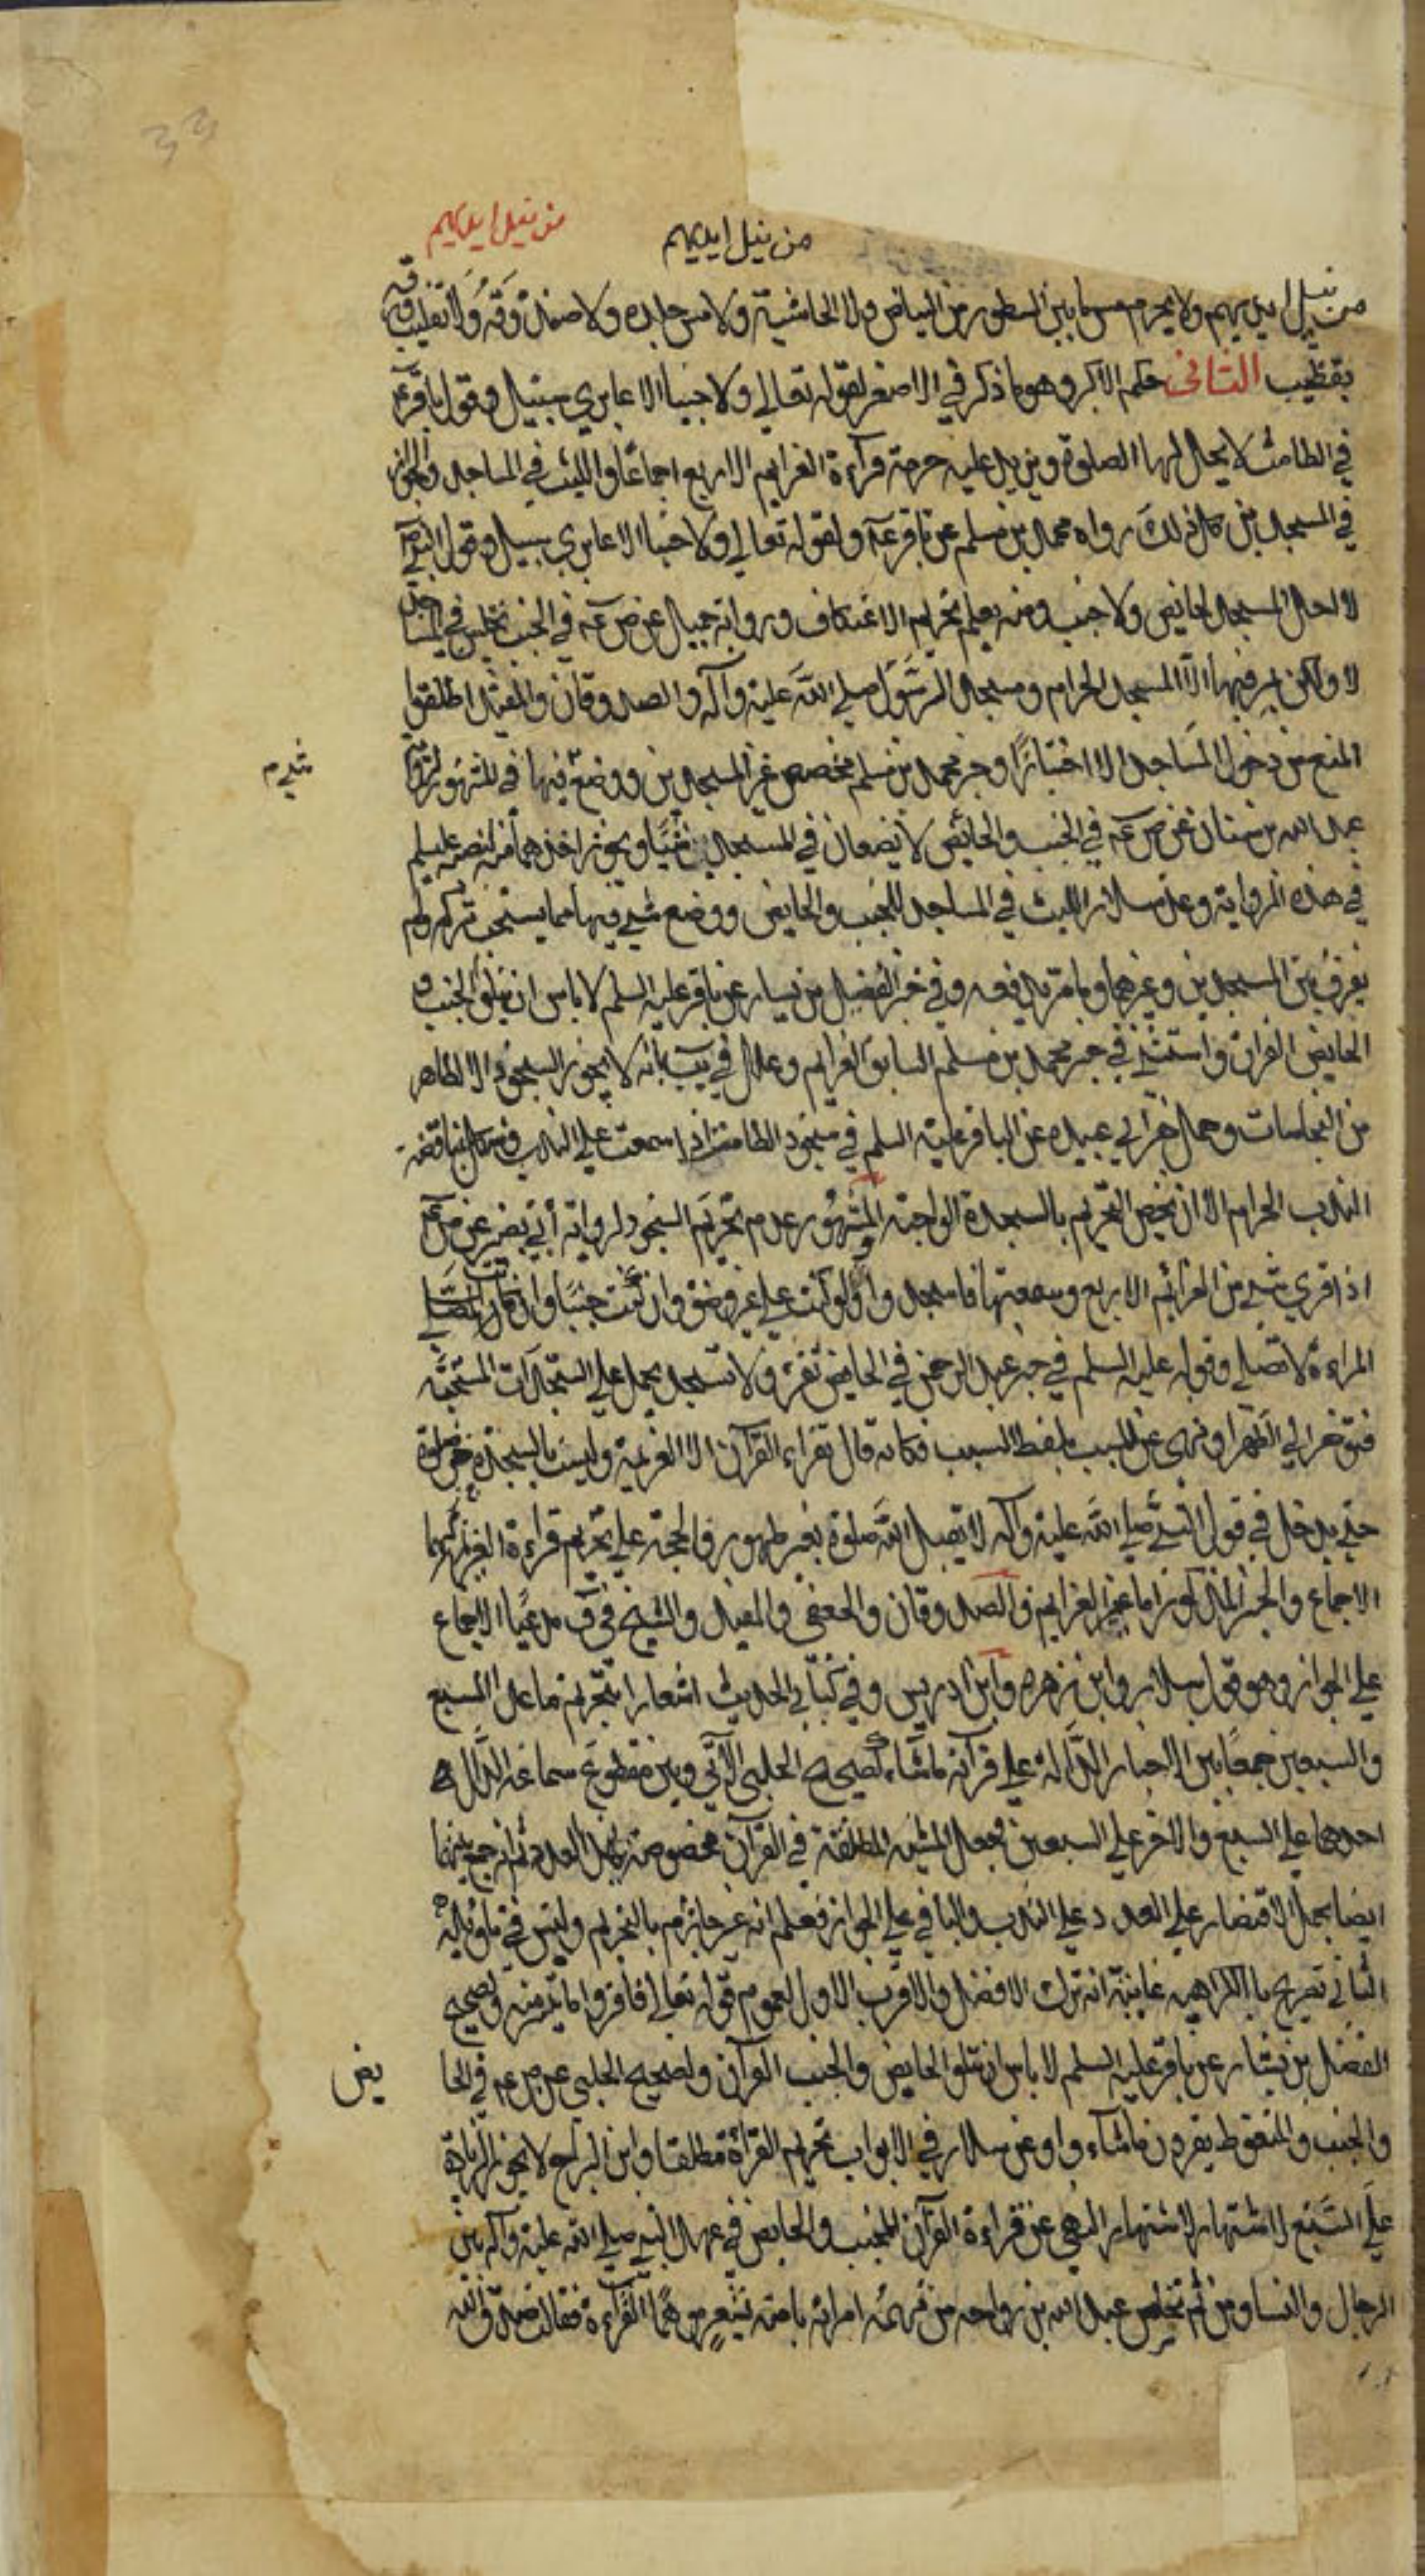 33
من نيل ايديهم
من نيل ايديهم
من نيل ايديهم ولا يحرم مس ما بين السطور من البياض ولا الحاشية ولا مس جلده ولا صندوقه ولا تقليب ورقه
بقضيب الثاني حكم الاكبر وهو ما ذكر في الاصغر لقوله تعالى ولا جنبا الا عابري سبيل وقول باقر ع
في الطامث لا يحل لها الصلوة ويزيد عليه حرمة قرآءة العزايم الاربع اجماعا واللبث في المساجد والجواز
في المسجدين كل ذلك رواه محمد بن مسلم عن باقر ع ولقوله تعالى ولا جنبا الا عابري سبيل وقول النبي
لا احل المسجد لحايض ولا جنب ومنه يعلم تحريم الاعتكاف ورواية جميل عن ص ع في الجنب يجلس في المساجد
لا ولكن يمر فيها الا المسجد الحرام ومسجد الرسول صلى الله عليه وآله والصدوقان والمفيد اطلقوا
المنع من دخول المساجد الا اجتيازا وخبر محمد بن مسلم مخصص غير المسجدين ووضع فيها في المشهور لرواية
شيء م
عبد الله بن سنان عن ص ع في الجنب والحائض لا يضعان في المسجد شيئا ويجوز اخذهما منه لنصه عليه السلم
في هذه الرواية وعد سلار اللبث في المساجد للجنب والحايض ووضع شيء فيها مما يستحب تركه ولم
يفرق بين المسجدين وغيرهما وما مر يدفعه وفي خبر الفضيل بن يسار عن باقر عليه السلم لا باس ان يتلو الجنب و
الحايض القران واستثنى في خبر محمد بن مسلم السابق العزايم وعلل في يب بانه لا يجوز السجود الا لطاهر
من النجاسات وحمل خبر ابي عبيده عن الباقر عليه السلم في سجود الطامث اذا سمعت على الندب مناقضة
الندب الحرام الا ان يخص التحريم بالسجدة الواجبة والمشهور عدم تحريم السجود لرواية ابي بصير عن ص ع
اذا قري شيء من العزائم الاربع وسمعتها فاسجد وان كنت على غير وضوء وان كنت جنبا وان كانت
المراءة لا تصلي وقوله عليه السلم في خبر عبد الرحمن في الحايض تقرء ولا تسجد يحمل على السجدات المستحبة
الى الطهر او نهى عن السبب بلفظ المسبب فكانه قال تقراء القرآن الا العزيمة وليست بالسجدة صلوة
حتى يدخل في قول النبي صلى الله عليه وآله لا يقبل الله صلوة بغير طهور فالحجة على تحريم قراءة العزايم
الاجماع والخبر المذكور اما غير العزايم فالصدوقان والجعفي والمفيد والشيخ في ف مدعيا الاجماع
على الجواز وهو قول سلار وابن زهرة وابن ادريس وفي كتابي الحديث اشعار بتحريم ما عدا السبع
والسبعين جمعا بين الاخبار الدالة على قرآنه ما شاء كصحيح الحلبي الآتي وبين مقطوع سماعه الدال
احدهما على السبع والاخر على السبعين فجعل المشيه المطلقة في القرآن مخصوصة بهذا العدد ثم جمع بينهما
ايضا بحمل الاقتصار على العدد على الندب والباقي على الجواز فعلم انه غير جازم بالتحريم وليس في تاويله
الثاني تصريح بالكراهيه غايته انه ترك الافضل والاقرب الاول لعموم قوله تعالى فاقرؤا ما تيسر منه ولصحيح
الفضيل بن يسار عن باقر عليه السلم لا باس ان يتلو الحايض والجنب القرآن ولصحيح الحلبي عن ص ع في الحا
يض
والجنب والمتغوط يقرون ما شآء واو عن سلار في الابواب تحريم القرآءة مطلقا وابن البراج لا يجوز الزيادة
على السبع لاشتهار النهي عن قراءة القرآن للجنب والحايض في عهد النبي صلى الله عليه وآله بين
الرجال والنساء ومن ثم تخلص عبد الله بن رواحه من تهمة امراته بامته بشعر موهما القرآءة فقالت صدق الله